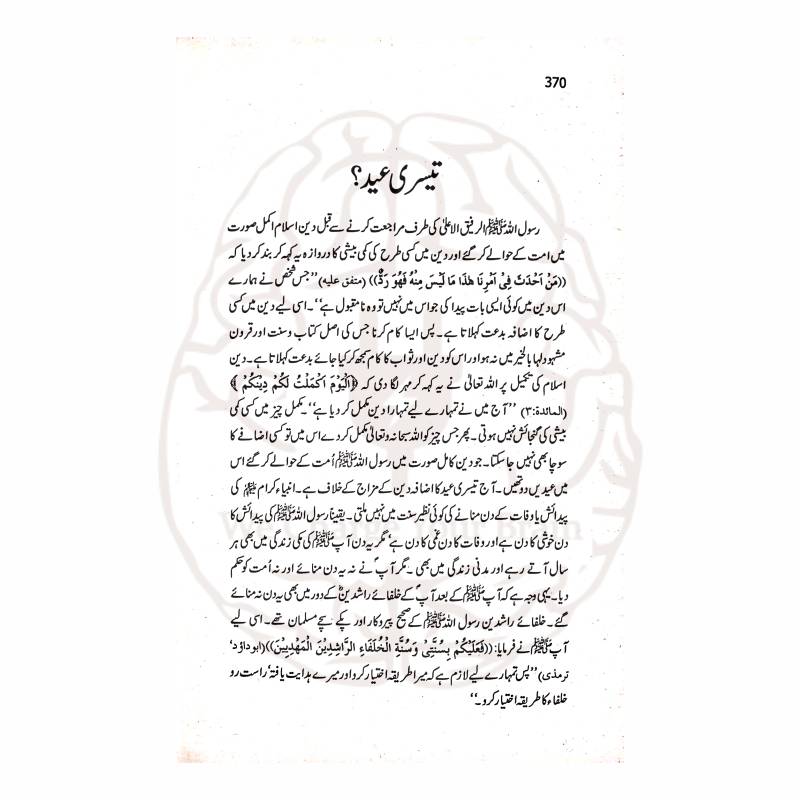 370
تیسری عید؟
رسول اللہ ﷺ الرفیق الاعلیٰ کی طرف مراجعت کرنے سے قبل دین اسلام اکمل صورت
میں امت کے حوالے کر گئے اور دین میں کسی طرح کی کمی بیشی کا دروازہ یہ کہہ کر بند کر دیا کہ
((مَنْ اَحْدَثَ فِیْ اَمْرِنَا هٰذَا مَا لَیْسَ مِنْهُ فَهُوَ رَدٌّ)) (متفق علیه) ’’جس شخص نے ہمارے
اس دین میں کوئی ایسی بات پیدا کی جو اس میں نہیں تو وہ نا مقبول ہے‘‘۔ اسی لیے دین میں کسی
طرح کا اضافہ بدعت کہلاتا ہے۔ پس ایسا کام کرنا جس کی اصل کتاب وسنت اور قرون
مشہود لہا بالخیر میں نہ ہو اور اس کو دین اور ثواب کا کام سمجھ کر کیا جائے بدعت کہلاتا ہے۔ دین
اسلام کی تکمیل پر اللہ تعالیٰ نے یہ کہہ کر مہر لگا دی کہ ﴿اَلْیَوْمَ اَکْمَلْتُ لَکُمْ دِیْنَکُمْ﴾
(المائدة:۳) ’’آج میں نے تمہارے لیے تمہارا دین مکمل کر دیا ہے‘‘۔ مکمل چیز میں کسی کمی
بیشی کی گنجائش نہیں ہوتی۔ پھر جس چیز کو اللہ سبحانہ وتعالیٰ مکمل کر دے اس میں تو کسی اضافے کا
سوچا بھی نہیں جا سکتا۔ جو دین کامل صورت میں رسول اللہ ﷺ اُمت کے حوالے کر گئے اس
میں عیدیں دو تھیں۔ آج تیسری عید کا اضافہ دین کے مزاج کے خلاف ہے۔ انبیاء کرام ﷩ کی
پیدائش یا وفات کے دن منانے کی کوئی نظیر سنت میں نہیں ملتی۔ یقیناً رسول اللہ ﷺ کی پیدائش کا
دن خوشی کا دن ہے اور وفات کا دن غمی کا دن ہے‘ مگر یہ دن آپ ﷺ کی مکی زندگی میں بھی ہر
سال آتے رہے اور مدنی زندگی میں بھی۔ مگر آپؐ نے نہ یہ دن منائے اور نہ اُمت کو حکم
دیا۔ یہی وجہ ہے کہ آپ ﷺ کے بعد آپؐ کے خلفائے راشدینؓ کے دور میں بھی یہ دن نہ منائے
گئے۔ خلفائے راشدین رسول اللہ ﷺ کے صحیح پیروکار اور پکے سچے مسلمان تھے۔ اسی لیے
آپ ﷺ نے فرمایا: ((فَعَلَیْکُمْ بِسُنَّتِیْ وَسُنَّةِ الْخُلَفَاءِ الرَّاشِدِیْنَ الْمَهْدِیِّیْنَ)) (ابوداؤد‘
ترمذی) ’’پس تمہارے لیے لازم ہے کہ میرا طریقہ اختیار کرو اور میرے ہدایت یافتہ‘ راست رو
خلفاء کا طریقہ اختیار کرو۔‘‘